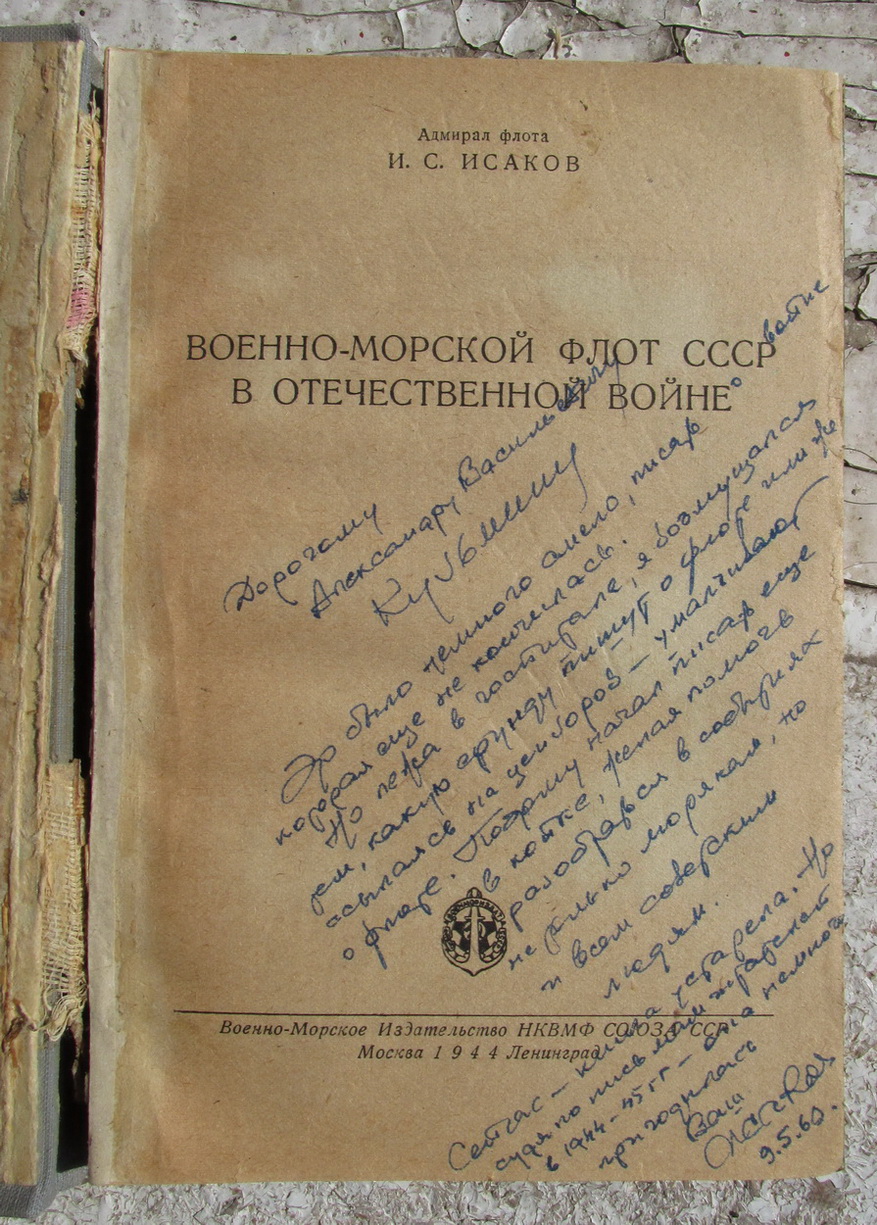 Адмирал флота
И. С. ИСАКОВ
ВОЕННО-МОРСКОЙ ФЛОТ СССР
В ОТЕЧЕСТВЕННОЙ ВОЙНЕ
Дорогому
Александру Васильевичу
Кузьмину
Это было немного смело, писать о войне
которая еще не кончилась.
Но лежа в госпитале, я возмущался
тем, какую ерунду пишут о флоте или же
ссылаясь на цензоров – умалчивают
о флоте. Поэтому начал писать еще
в койке, желая помочь
разобраться в событиях
не только морякам, но
и всем советским
людям.
Военно-Морское Издательство НКВМФ СОЮЗА ССР
Москва 1944 Ленинград
Сейчас – книга устарела. Но
судя по письмам читателей
в 1944-45 гг – она немного
пригодилась
Ваш
ИСИсаков
9.5.60.